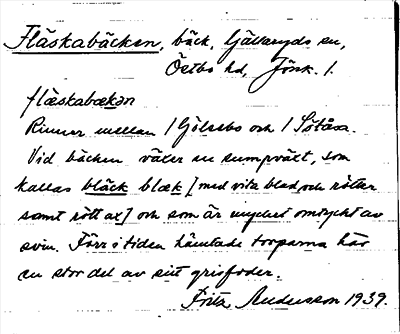 Fläskabäcken, bäck, Gällaryds sn,
Östbo hd, Jönk. l.
flæskabækən
Rinner mellan 1 Gölsebo och 1 Sötåsa.
Vid bäcken växer en sumpväxt, som
kallas bläck blæk [med vita blad och rötter
samt rött ax] och som är mycket omtyckt av
svin. Förr i tiden hämtade torparna här
en stor del av sitt grisfoder.
Frits Andersson 1939.